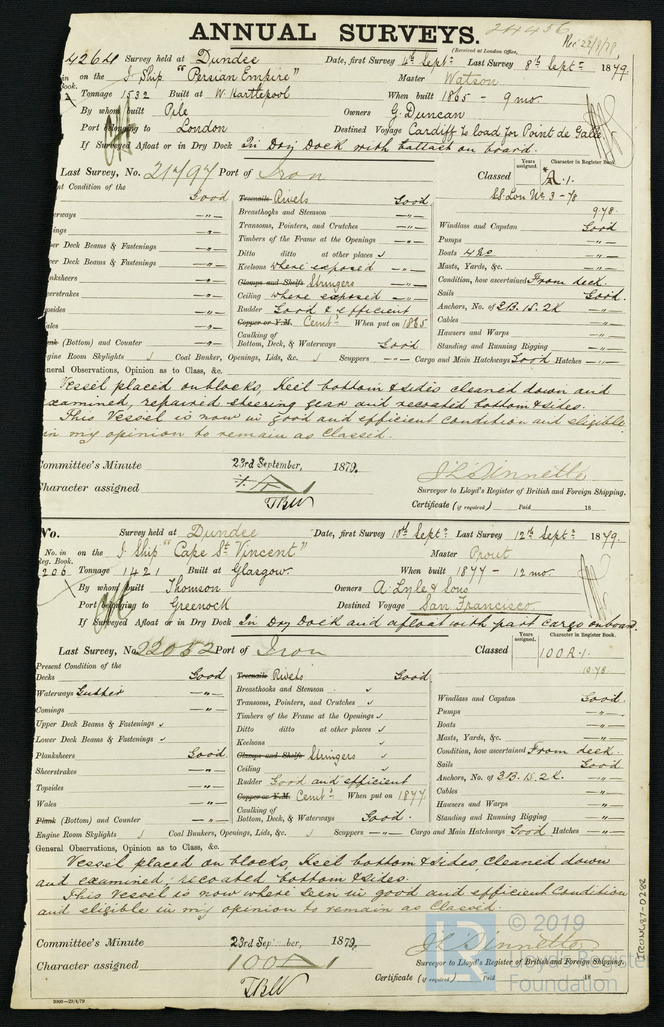 ANNUAL SURVEYS.
24436
(Received at London Office, Rec 22/9/79
4264 Survey held at Dundee Date, first Survey 4th Septr Last Survey 8th Septr 1879.
in on the I Ship "Persian Empire" Master Watson
Book.
Tonnage 1532 Built at W. Hartlepool When built 1865 - 9 mo.
By whom built Pile Owners G. Duncan
Port belonging to London Destined Voyage Cardiff to load for Point de Galle
If Surveyed Afloat or in Dry Dock In Dry Dock with ballast on board.
Years assigned. Character in Register Book.
Last Survey, No. 21797 Port of Iron Classed A.1.
SS Lon No 3-78
9.78.
nt Condition of the
Good Treenails Rivets Good
erways -"- Breasthooks and Stemson -"- Windlass and Capstan Good
ings -"- Transoms, Pointers, and Crutches -"- Pumps -"-
er Deck Beams & Fastenings -"- Timbers of the Frame at the Openings -"- Boats 4 &c -"-
wer Deck Beams & Fastenings -"- Ditto ditto at other places Masts, Yards, &c. -"-
nksheers -"- Keelsons where exposed -"- Condition, how ascertained From deck.
eerstrakes -"- Clamps and Shelfs Stringers Sails Good.
Ceiling where exposed -"-
opsides -"- Rudder Good & efficient Anchors, No. of 3B. 1S. 2K -"-
ales -"- Copper or Y.M. Cemt. When put on 1865 Cables -"-
Plank (Bottom) and Counter -"- Caulking of Bottom, Deck, & Waterways Good Hawsers and Warps -"-
Standing and Running Rigging -"-
ngine Room Skylights Coal Bunker, Openings, Lids, &c. Scuppers -"- Cargo and Main Hatchways Good Hatches -"-
eneral Observations, Opinion as to Class, &c.
Vessel placed on blocks, Keel bottom & sides cleaned down and
examined, repaired steering gear and recoated bottom & sides.
This Vessel is now in good and efficient condition and eligible
in my opinion to remain as Classed.
Committee's Minute 23rd September, 1879.
Character assigned
TBW
Surveyor to Lloyd's Register of British and Foreign Shipping.
Certificate (if required) Paid 18
No. Survey held at Dundee Date, first Survey 10th Septr Last Survey 12th Septr 1879.
No. in on the I Ship "Cape St. Vincent" Master Prout
Reg. Book.
206 Tonnage 1421 Built at Glasgow When built 1877 - 12 mo.
By whom built Thomson Owners A. Lyle & Sons
Port belonging to Greenock Destined Voyage San Francisco
If Surveyed Afloat or in Dry Dock In Dry Dock and afloat with part cargo onboard.
Years assigned. Character in Register Book.
Last Survey, No. 22052 Port of Iron Classed 100A.1.
10.78
Present Condition of the
Decks Good Treenails Rivets Good
Waterways Gutter -"- Breasthooks and Stemson Windlass and Capstan Good.
Comings -"- Transoms, Pointers, and Crutches Pumps -"-
Upper Deck Beams & Fastenings Timbers of the Frame at the Openings Boats -"-
Lower Deck Beams & Fastenings Ditto ditto at other places Masts, Yards, &c. -"-
Planksheers Good Keelsons Condition, how ascertained From deck.
Clamps and Shelfs Stringers
Sheerstrakes -"- Ceiling Sails Good
Topsides -"- Rudder Good and efficient Anchors, No. of 3B. 1S. 2K. -"-
Wales -"- Copper or Y.M. Cemt. When put on 1877 Cables -"-
Plank (Bottom) and Counter -"- Caulking of Bottom, Deck, & Waterways Good. Hawsers and Warps -"-
Standing and Running Rigging -"-
Engine Room Skylights Coal Bunkers, Openings, Lids, &c. Scuppers -"- Cargo and Main Hatchways Good Hatches -"-
General Observations, Opinion as to Class, &c.
Vessel placed on blocks, Keel bottom & sides, cleaned down
and examined, recoated bottom & sides.
This Vessel is now where seen in good and efficient Condition
and eligible in my opinion to remain as Classed.
Committee's Minute 23rd September, 1879.
Character assigned 100A1
TBW
Surveyor to Lloyd's Register of British and Foreign Shipping.
Certificate (if required) Paid 18
3000-29/4/79
IRONX87-0282
LR © 2019
Lloyd's Register
Foundation